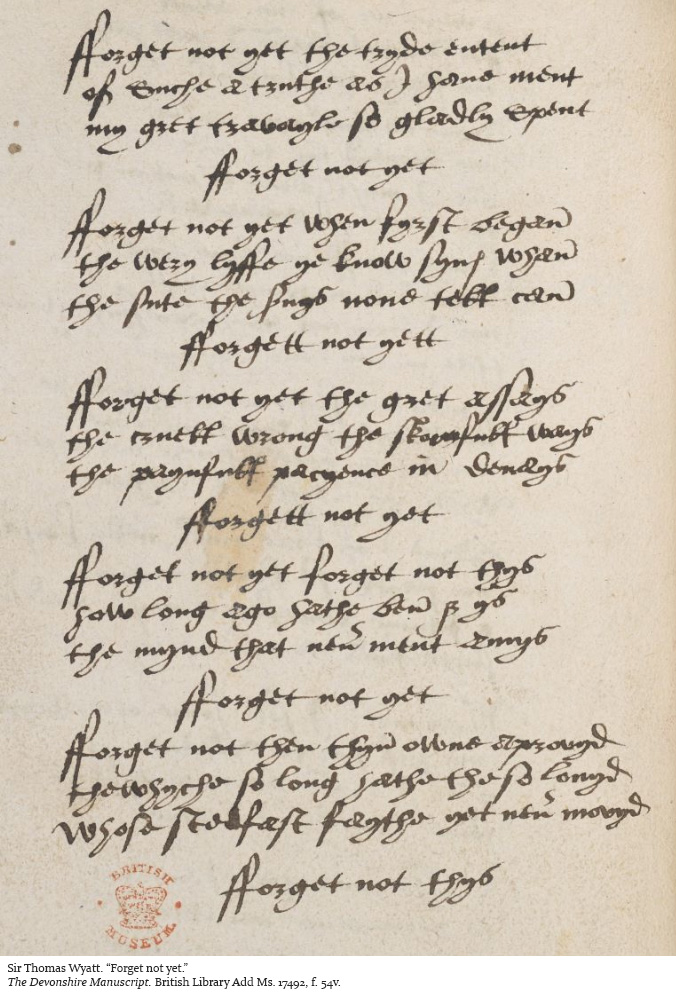 fforget not yet the tryde entent
of suche a truthe as I haue ment
my gret travayle so gladly spent
fforget not yet
fforget not yet when fyrst began
the wery lyffe ye know syns whan
the sute the suys none tell can
fforgett not yett
fforget not yet the gret assays
the cruell wrong the skornfull ways
the paynfull pacyence in denays
fforgett not yet
fforget not yet forget not thys
how long ago hathe ben & ys
the mynd that neu ment amys
fforget not yet
fforget not then thyn owne aprovyd
the whyche so long hathe the so lovyd
whose stedfast faythe yet neu movyd
fforget not thys
BRITISH
MUSEUM
Sir Thomas Wyatt. “Forget not yet.”
The Devonshire Manuscript. British Library Add Ms. 17492, f. 54v.